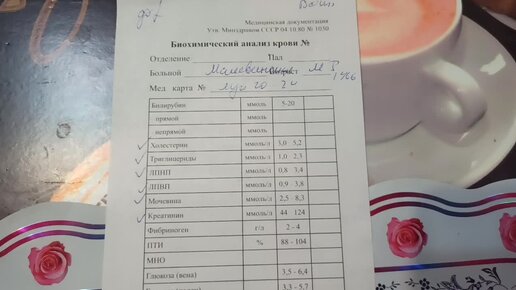 Медицинская документация
Утв. Минздравом СССР 04.10.80 № 1030
Биохимический анализ крови №
Отделение Пал
Больной
Мед карта №
Билирубин ммоль 5-20
прямой ммоль
непрямой ммоль
Холестерин ммоль/л 3,0 5,2
Триглицериды ммоль/л 1,0 2,3
ЛПНП ммоль/л 0,8 3,4
ЛПВП ммоль/л 0,9 3,8
Мочевина ммоль/л 2,5 8,3
Креатинин ммоль/л 44 124
Фибриноген г/л 2-4
ПТИ % 88 - 104
МНО
Глюкоза (вена) 3,5 - 6,4
3,3 - 5,7